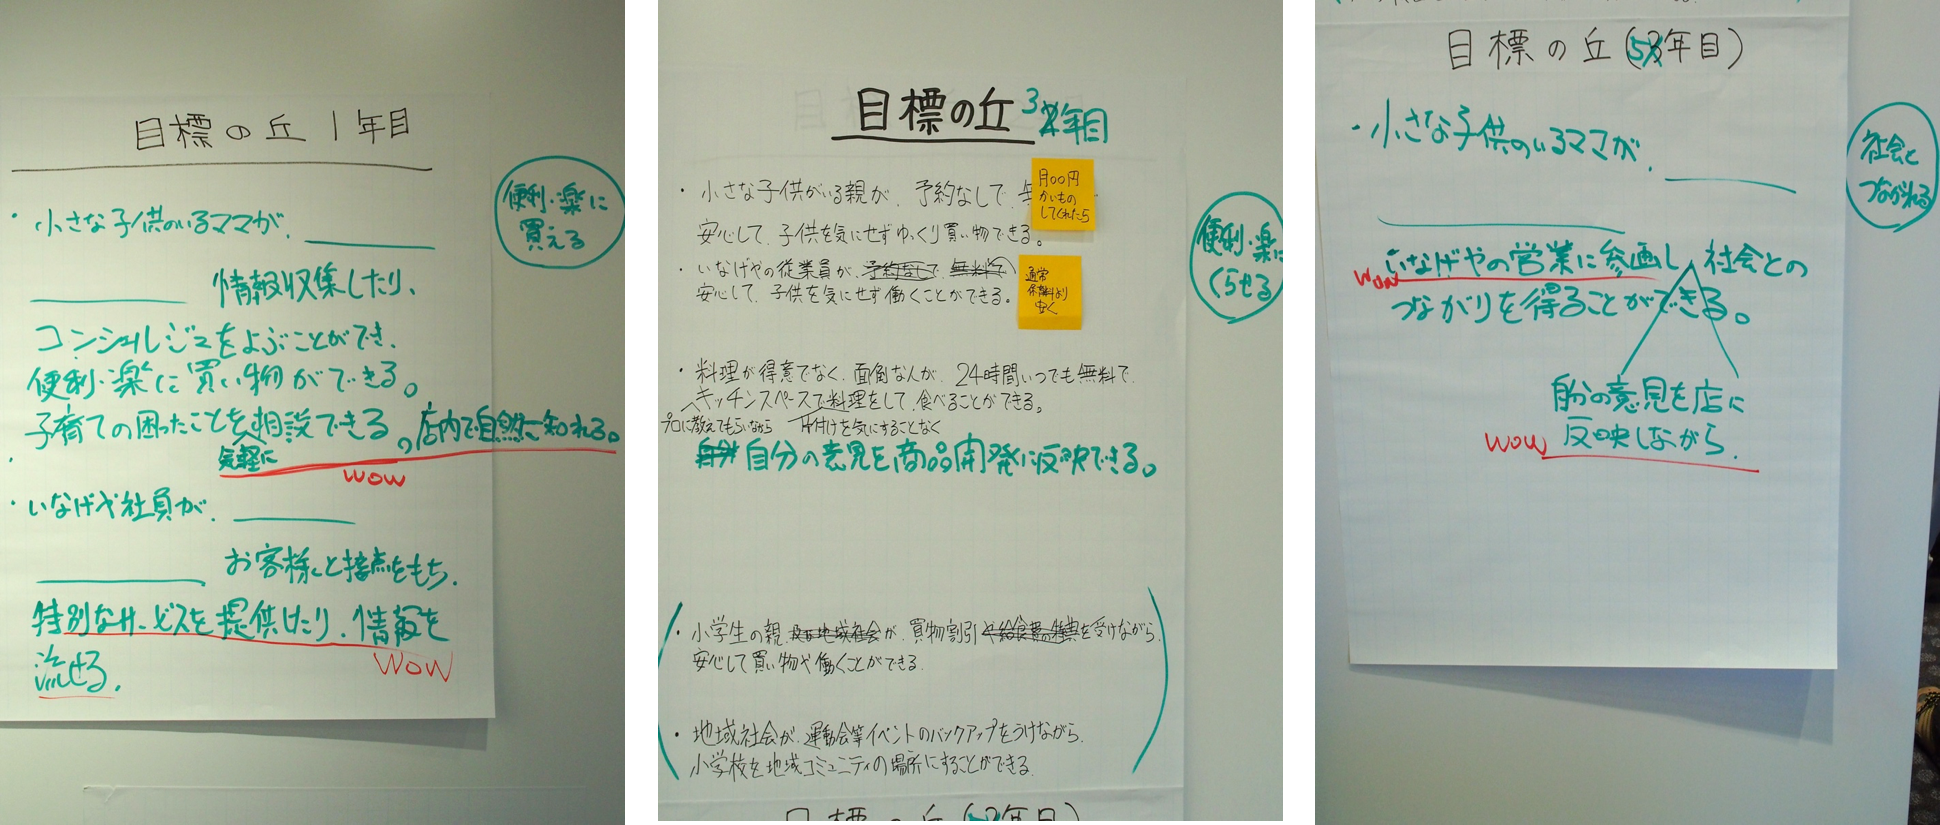 目標の丘 1年目
便利・楽に
買える
・小さな子供のいるママが、
情報収集したり、
コンシェルジュをよぶことができ、
便利・楽に買い物ができる。
子育ての困ったことを相談できる。店内で自然に知れる。
気軽に
WOW
・いなげや社員が、
お客様と接点をもち、
特別なサービスを提供したり、情報を
流せる。
WOW
目標の丘 3年目
・小さな子供がいる親が、予約なしで、
月00円
かいもの
してくれたら
安心して、子供を気にせずゆっくり買い物できる。
・いなげやの従業員が、予約なしで、無料で、
安心して、子供を気にせず働くことができる。
通常
保育料より
安く
便利・楽に
くらせる
・料理が得意でなく、面倒な人が、24時間いつでも無料で、
キッチンスペースで料理をして、食べることができる。
プロに教えてもらいながら 片付けを気にすることなく
自分 自分の意見を商品開発に反映できる。
・小学生の親 が、買物割引 を受けながら、
安心して買い物や働くことができる。
・地域社会が、運動会等イベントのバックアップをうけながら、
小学校を地域コミュニティの場所にすることができる。
目標の丘(年目)
目標の丘(5年目)
社会と
つながれる
・小さな子供のいるママが、
いなげやの営業に参画し、社会との
WOW
つながりを得ることができる。
自分の意見を店に
反映しながら、
WOW